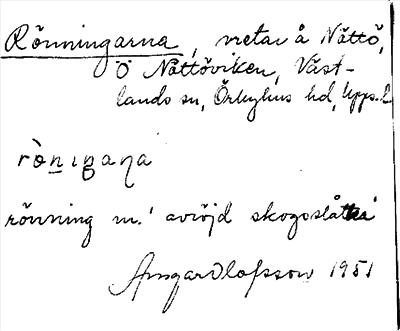 Rönningarna, vretar å Nåttö,
Ö Nåttöviken, Väst-
lands sn, Örbyhus hd, Upps. l
rò̱nıŋaɳa
rönning m. 'avröjd skogsslåtter'
Amgard Olofsson 1951